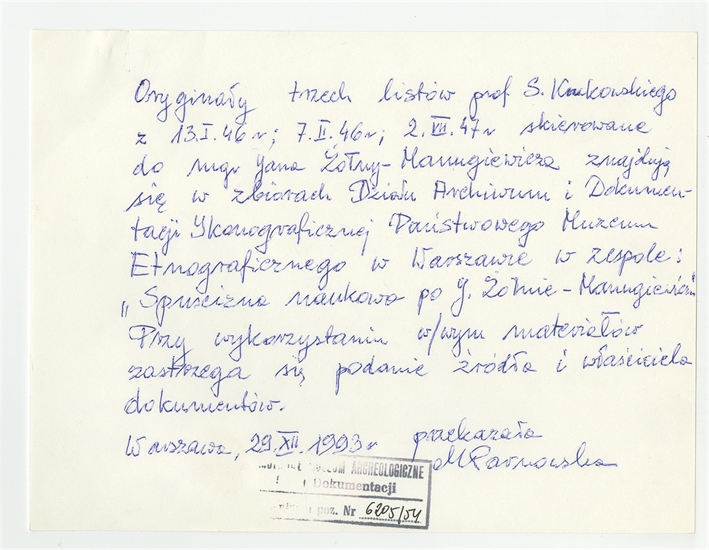 Oryginały trzech listów prof S. Krukowskiego
z 13.I.46 r; 7.II.46 r; 2.VII.47 r skierowane
do mgr Jana Żółny-Manugiewicza znajdują
się w zbiorach Działu Archiwum i Dokumen-
tacji Ikonograficznej Państwowego Muzeum
Etnograficznego w Warszawie w zespole:
„Spuścizna naukowa po J. Żółnie-Manugiewiczu"
Przy wykorzystaniu w/wym materiałów
zastrzega się podanie źródła i właściciela
dokumentów.
Warszawa, 29.XII.1993 r przekazała
ARCHEOLOGICZNE
Dokumentacji
poz. Nr 6205/54